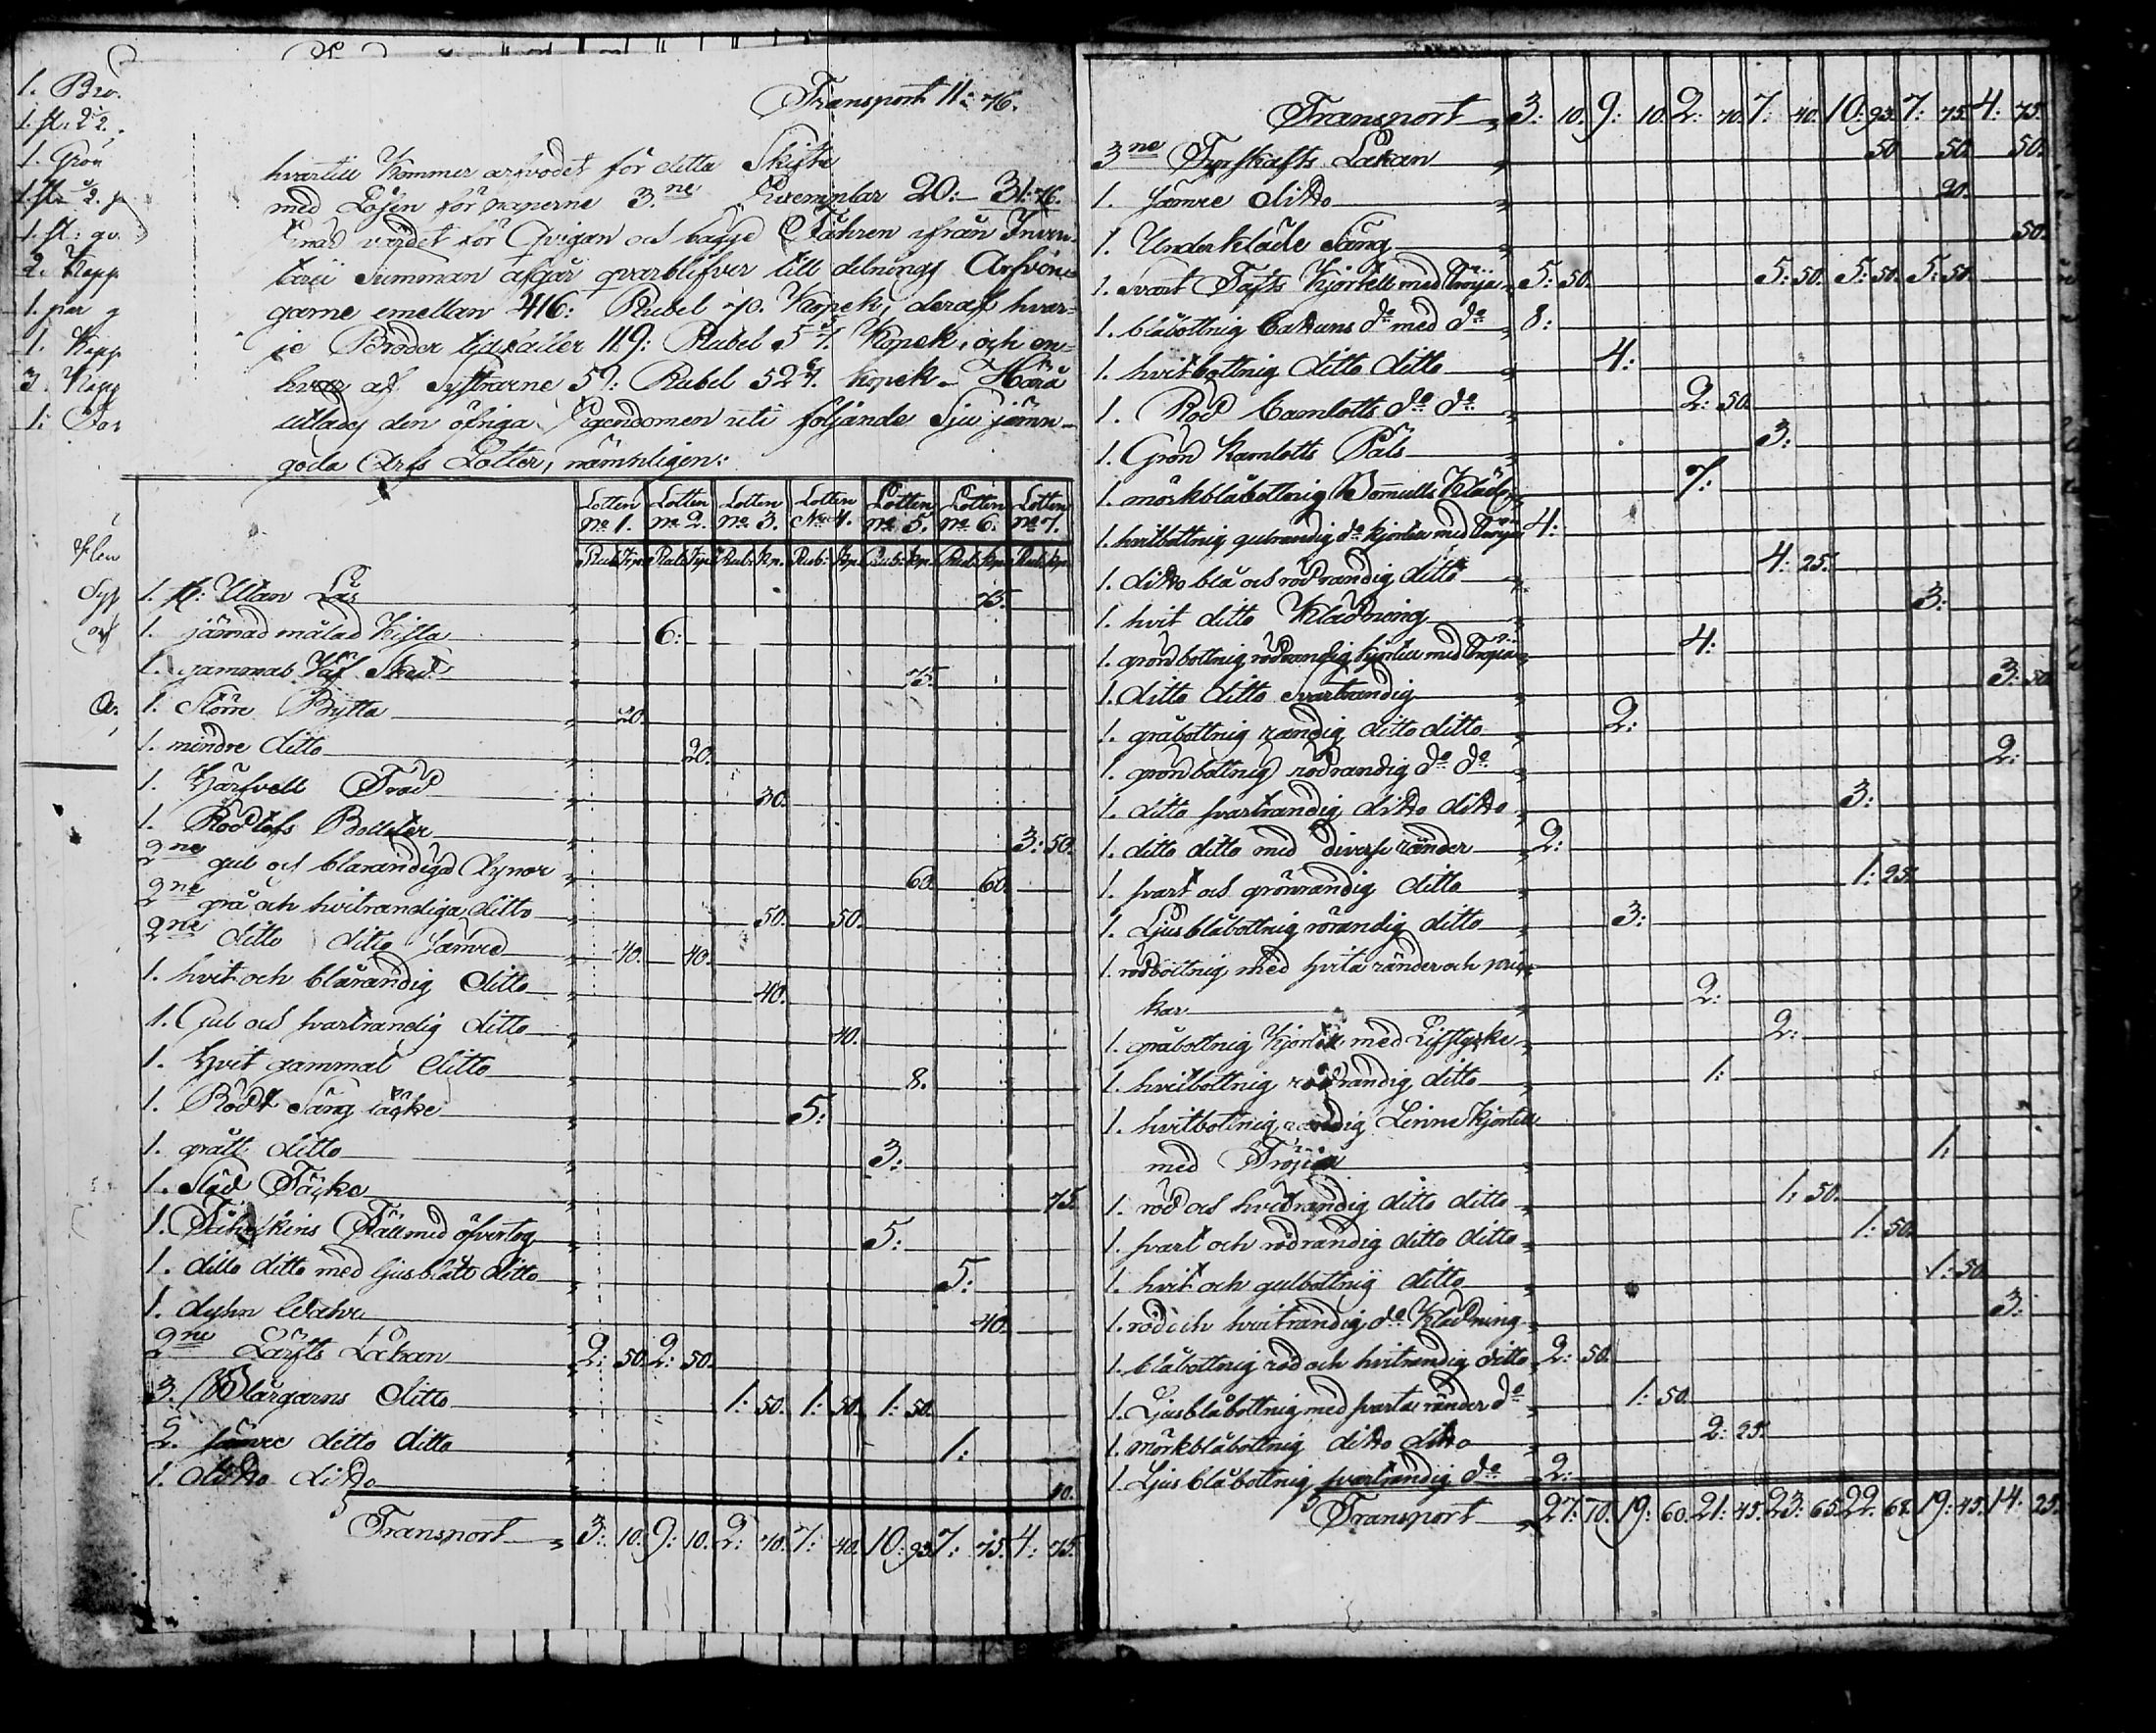 1. Bro.
1. st: d:o 2.
1. Grön
1. st. 2.
1. st: gr.
2. Kapp
1. par g
1. Kapp
3. Kapp
1. For
Transport 11: 76.
hvartill kommer arfvodet för detta Skifte
med Lösen för paperne 3.ne Exemplar 20:— 31: 76.
hvad värdet för Qvigan och bägge Fåhren ifrån Inven-
tarii Summan afgår qvarblifver till delnings Arfvin-
garne emellan 416: Rubel 70. Kopek, deraf hvar-
je Broder tillfaller 119: Rubel 5 Kopek, och en-
hvar af Systrarne 59: Rubel 52 kopek. Härå
utlades den öfriga Egendomen uti följande Sju jämn-
goda Arfs Lotter, nämnligen:
Lotten No 1. Lotten No 2. Lotten No 3. Lotten No 4. Lotten No 5. Lotten No 6. Lotten No 7.
Rub: Kp. Rub: Kp. Rub: Kp. Rub: Kp. Rub: Kp. Rub: Kp. Rub: Kp.
1. st: Utan Lås 75.
1. järnad målad Kista 6:
1. gammal Väf Sked 75.
1. Större Bytta 20.
1. mindre ditto 20.
1. Härfvell Träd 30.
1. Röd tofs Bolster 3: 50.
2ne gul och blårandiga Dynor 60. 60.
2ne grå och hvitrandiga ditto 50. 50.
2ne ditto ditto Sämre 40. 40.
1. hvit och blårandig ditto 40.
1. Gul och svartrandig ditto 40.
1. Hvit gammal ditto 8.
1. Rödt Säng täcke 5:
1. grått ditto 3:
1. Släd Täcke 75.
1. Fåhrskins Fäll med öfvertog 5:
1. ditto ditto med ljusblått ditto 5:
1. dyhn Wahr 40.
2ne Lärfts Lakan 2: 50. 2: 50.
3. Blårgarns ditto 1: 50. 1: 50. 1: 50.
2. Sämre ditto ditto 1:
1. ditto ditto 10.
Transport 3: 10. 9: 10. 2: 70. 7: 40. 10: 93. 7: 75. 4: 75.
Transport 3: 10. 9: 10. 2: 70. 7: 40. 10: 93. 7: 75. 4: 75.
3ne Fyrskafts Lakan 50. 50. 50.
1. Sämre ditto 20.
1. Underkläde Säng 50.
1. svart Tafts Kjortell med Tröja 5: 50. 5: 50. 5: 50. 5: 50.
1. blåbottnig Cattuns do med do 8:
1. hvitbottnig ditto ditto 4:
1. Röd Camlotts do do 2: 50.
1. Grön Kamlotts Päls 3:
1. mörkblåbottnig Bomulls Kläd. 7:
1. hvitbottnig gulrandig do kjortell med Tröja 4:
1. ditto blå och rödrandig ditto 4: 25.
1. hvit ditto Klädning 3:
1. grönbottnig rödrandig kjortell med Tröja 4:
1. ditto ditto svartrandig 3: 50.
1. gråbottnig randig ditto ditto 2:
1. grönbottnig rödrandig do do 2:
1. ditto svartrandig ditto ditto 3:
1. ditto ditto med diverse ränder 2:
1. svart och grönrandig ditto 1: 25.
1. Ljusblåbottnig rörandig ditto 3:
1. rödbottnig med hvita ränder och pric-
kar 2:
1. gråbottnig Kjortell med Lifstycke 2:
1. hvitbottnig rödrandig ditto 1:
1. hvitbottnig randig Linne Kjortell
med Tröja 1:
1. röd och hvitrandig ditto ditto 1: 50.
1. svart och rödrandig ditto ditto 1: 50.
1. hvit och gulbottnig ditto 1: 50.
1. röd och hvitrandig do Klädning 3:
1. blåbottnig röd och hvitrandig ditto 2: 50.
1. Ljusblåbottnig med svarta ränder do 1: 50.
1. mörkblåbottnig ditto ditto 2: 25.
1. Ljus blåbottnig svartrandig do 2:
Transport 27: 70. 19: 60. 21: 45. 23: 65. 22: 68. 19: 45. 14: 25.